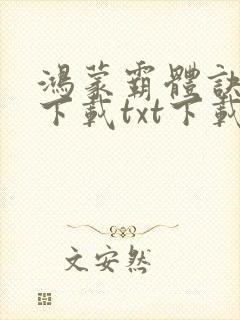 鴻蒙霸體訣
下載txt下載
文安然